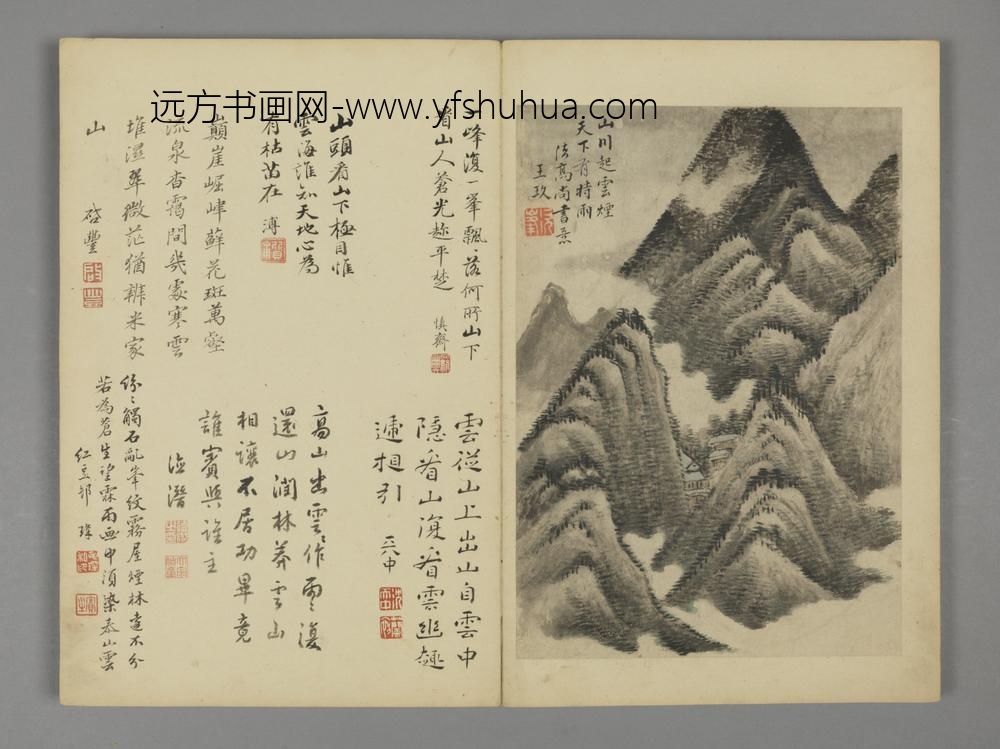 远方书画网-www.yfshuhua.com
山川起雲煙
天下有時雨
法高尚書意
王玖
一峰復一峯飄飄落何所山下
看山人蒼光趁平楚
慎齋
山頭看山下極目惟
雲海誰知天地心為
有枯苗在 溥
巔崖崛峍蘚花斑萬壑
流泉杳靄間幾處寒雲
堆濕翠微茫猶辨米家
山
啓豐
雲從山上出山自雲中
隱看山復看雲幽趣
遞相引
高山出雲雲作雨雨復
還山潤林莽雲山
相讓不居功畢竟
誰賓與誰主
德潛
紛紛觸石亂峯紋霧屋煙林遠不分
若為蒼生望霖雨画中須染泰山雲
紅豆邨